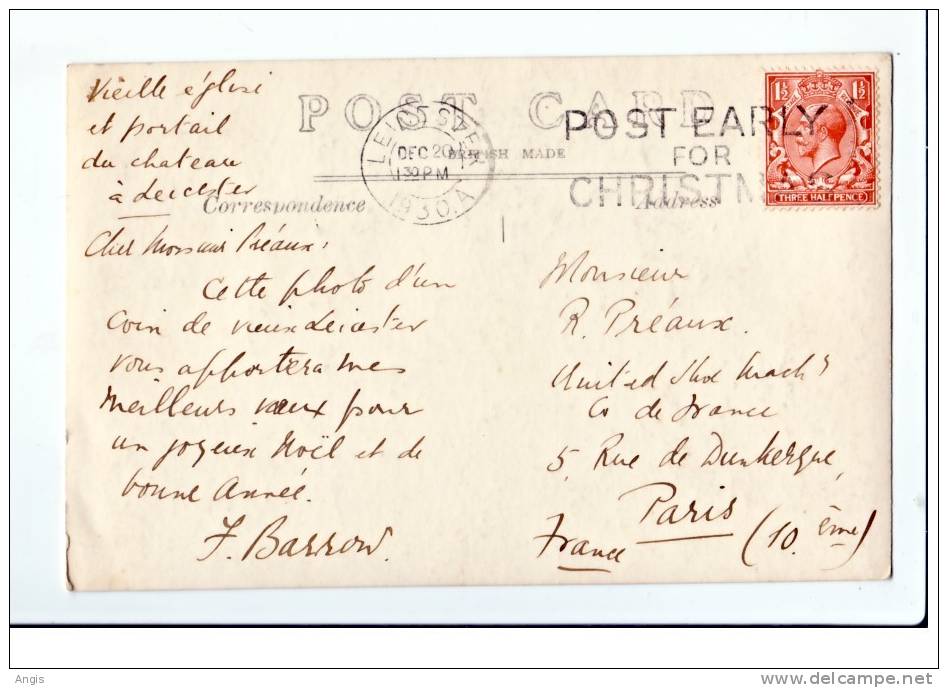 Vieille église
et portail
du chateau
à Leicester
POST CARD
BRITISH MADE
LEICESTER
DEC 20
1 30 PM
1930. A
POST EARLY
FOR
CHRISTM
1½ 1½
THREE HALFPENCE
Correspondence
Address
Cher Monsieur Préaux:
Cette photo d'un
coin de vieux Leicester
vous apportera mes
meilleurs vœux pour
un joyeux Noël et de
bonne Année.
F. Barrow.
Monsieur
R. Préaux.
United Shoe Machy
Co de France
5, Rue de Dunkerque,
Paris
France (10.ème)
Angis
www.delcampe.net